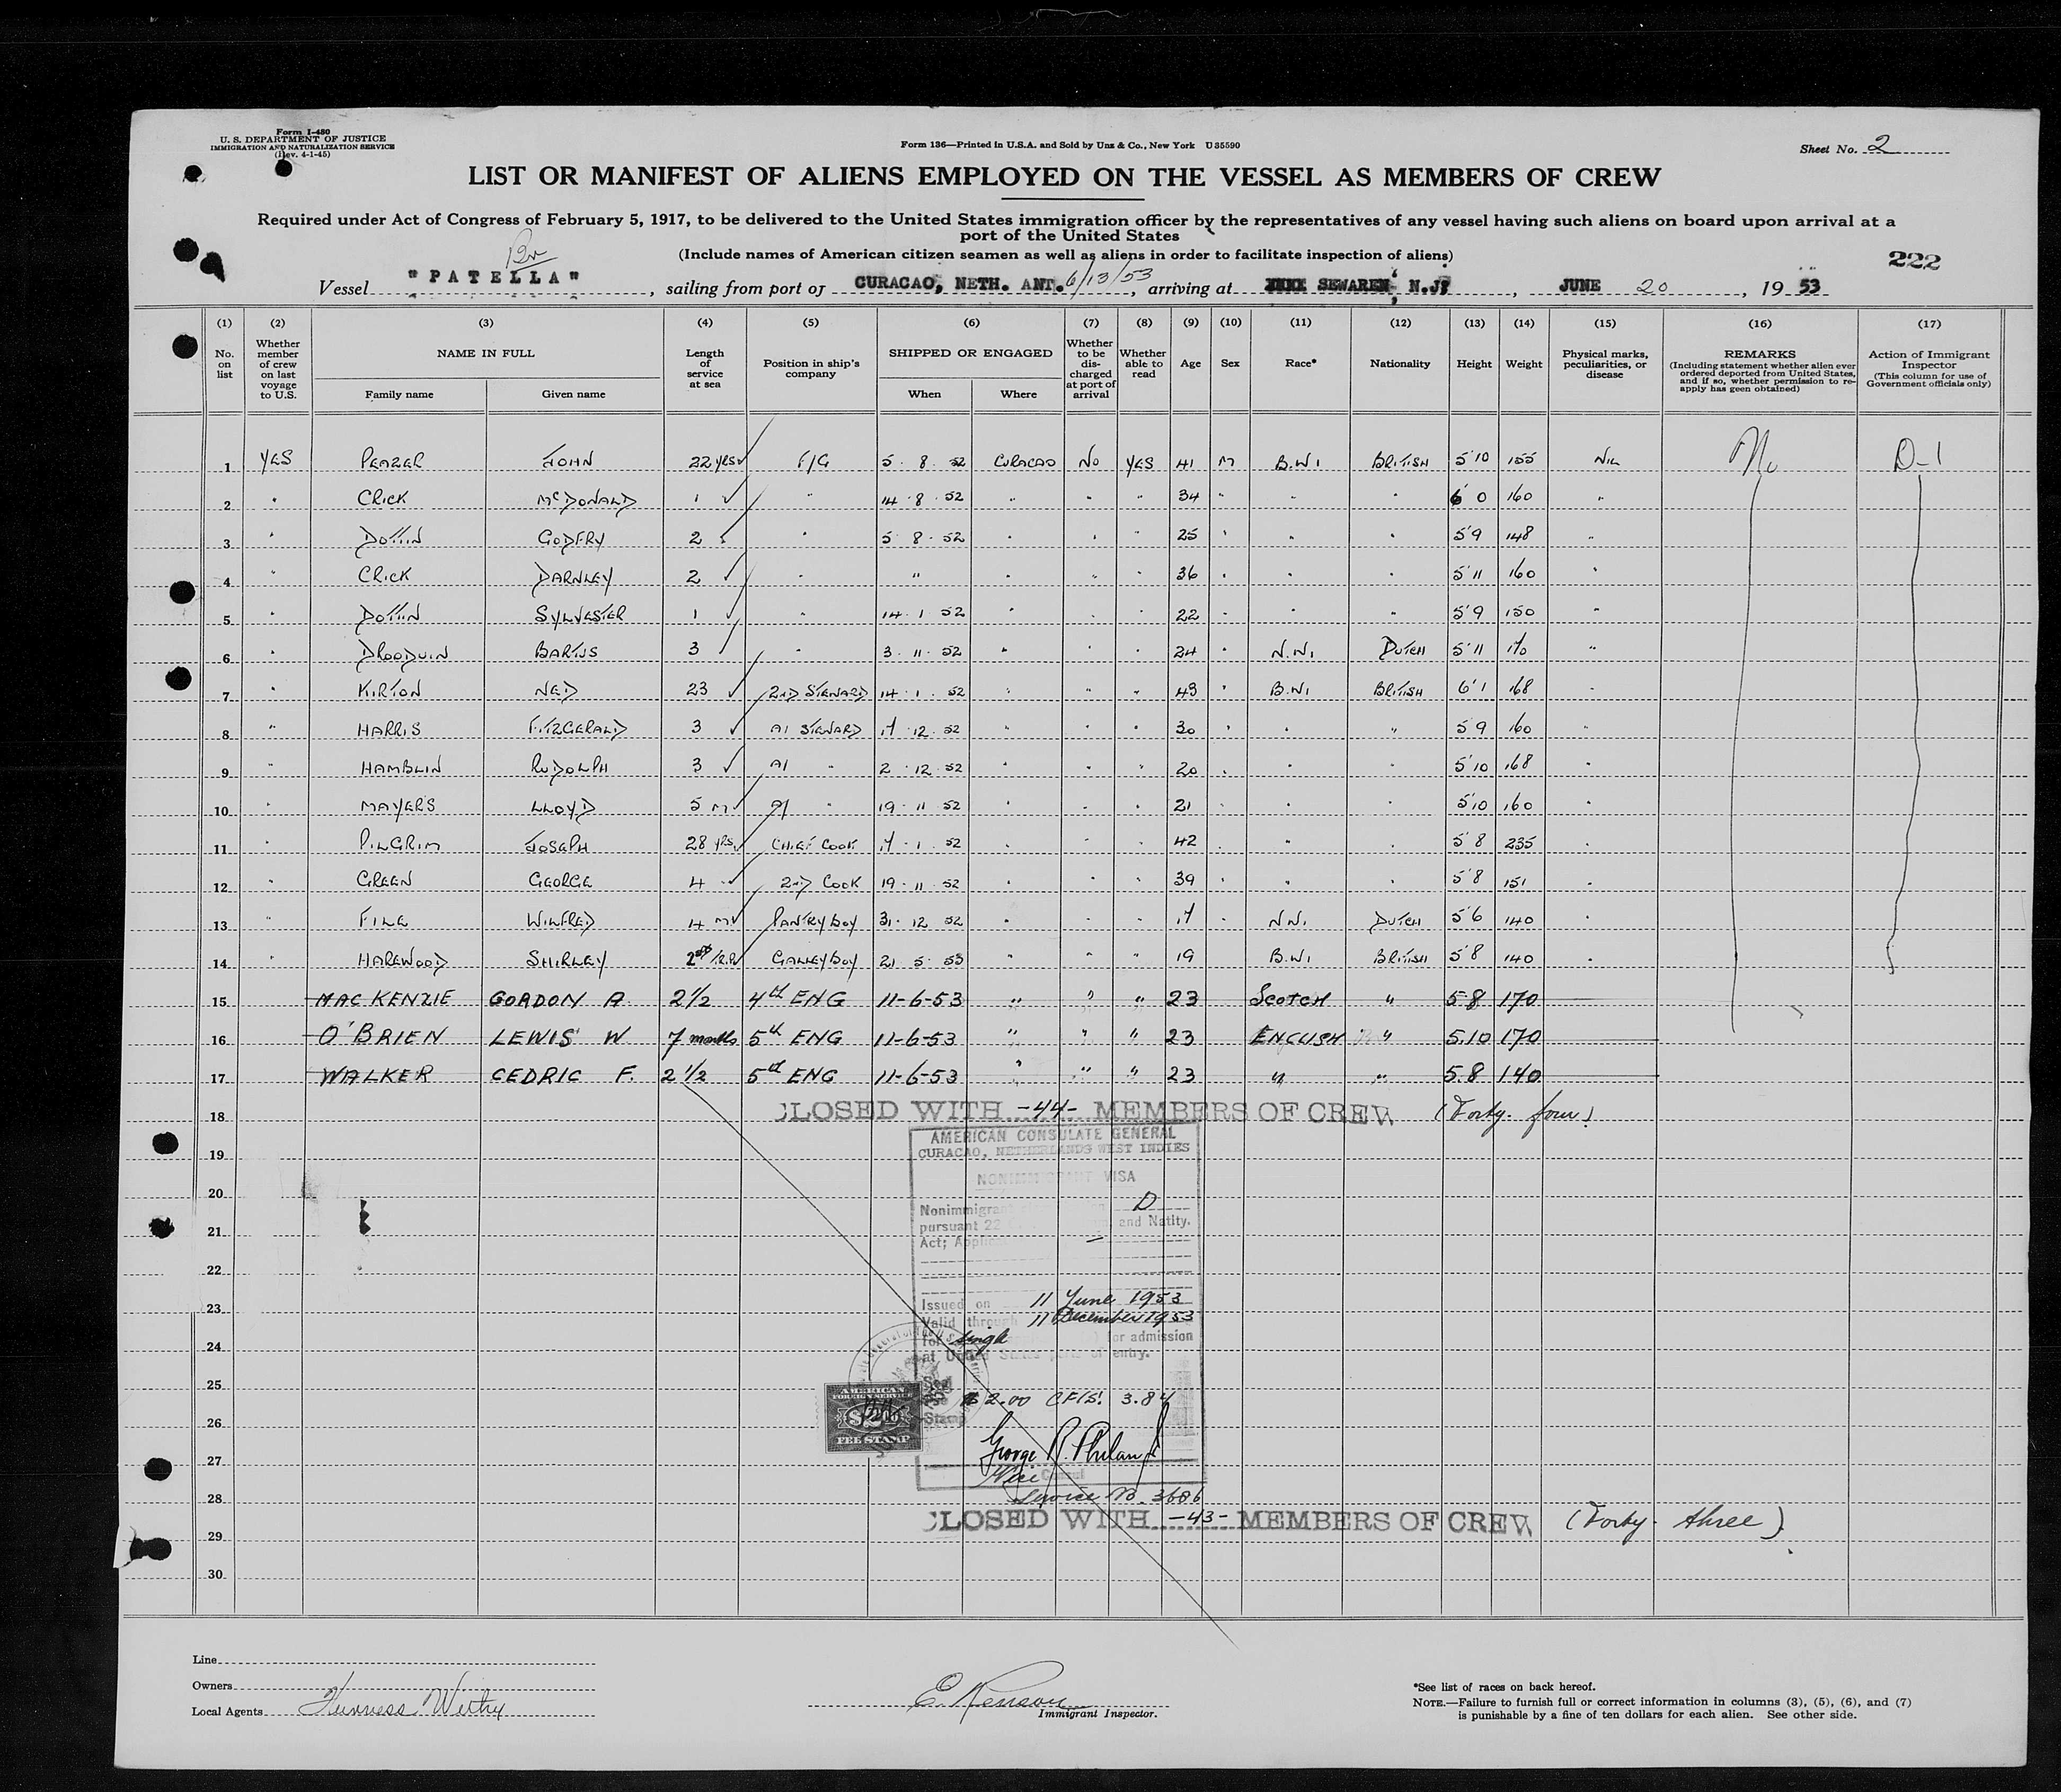 Form I-480
U. S. DEPARTMENT OF JUSTICE
IMMIGRATION AND NATURALIZATION SERVICE
(Rev. 4-1-45)
Form 136—Printed in U.S.A. and Sold by Unz & Co., New York U 35590
Sheet No. 2
LIST OR MANIFEST OF ALIENS EMPLOYED ON THE VESSEL AS MEMBERS OF CREW
Required under Act of Congress of February 5, 1917, to be delivered to the United States immigration officer by the representatives of any vessel having such aliens on board upon arrival at a
port of the United States
(Include names of American citizen seamen as well as aliens in order to facilitate inspection of aliens)
222
Br
Vessel "PATELLA", sailing from port of CURACAO, NETH. ANT. 6/13/53, arriving at SEWAREN, N.J., JUNE 20, 19 53
(1) (2) (3) (4) (5) (6) (7) (8) (9) (10) (11) (12) (13) (14) (15) (16) (17)
No. on list
Whether member of crew on last voyage to U.S.
NAME IN FULL
Family name Given name
Length of service at sea
Position in ship's company
SHIPPED OR ENGAGED
When Where
Whether to be discharged at port of arrival
Whether able to read
Age Sex Race* Nationality Height Weight
Physical marks, peculiarities, or disease
REMARKS
(Including statement whether alien ever ordered deported from United States, and if so, whether permission to re-apply has geen obtained)
Action of Immigrant Inspector
(This column for use of Government officials only)
1 YES PEAZER JOHN 22 YRS F/G 5 . 8 . 52 CURACAO NO YES 41 M B.W.I BRITISH 5'10 155 NIL No D-1
2 " CRICK McDONALD 1 " 14 . 8 . 52 " " " 34 " " " 6'0 160 "
3 " DOTTIN GODFRY 2 " 5 . 8 . 52 " " " 25 " " " 5'9 148 "
4 " CRICK DARNLEY 2 " " " " " 36 " " " 5'11 160 "
5 " DOTTIN SYLVESTER 1 " 14 . 1 . 52 " " " 22 " " " 5'9 150 "
6 " DROODUIN BARTJS 3 " 3 . 11 . 52 " " " 24 " N.W.I DUTCH 5'11 170 "
7 " KIRTON NED 23 2ND STEWARD 14 . 1 . 52 " " " 43 " B.W.I BRITISH 6'1 168 "
8 " HARRIS FITZGERALD 3 A1 STEWARD 17 . 12 . 52 " " " 30 " " " 5'9 160 "
9 " HAMBLIN RUDOLPH 3 A1 " 2 . 12 . 52 " " " 20 " " " 5'10 168 "
10 " MAYERS LLOYD 5 M A1 " 19 . 11 . 52 " " " 21 " " " 5'10 160 "
11 " PILGRIM JOSEPH 28 YRS CHIEF COOK 17 . 1 . 52 " " " 42 " " " 5'8 235 "
12 " GREEN GEORGE 4 2ND COOK 19 . 11 . 52 " " " 39 " " " 5'8 151 "
13 " FILE WILFRED 4 M PANTRY BOY 31 . 12 . 52 " " " 17 " N.W.I DUTCH 5'6 140 "
14 " HAREWOOD SHIRLEY GALLEY BOY 21 . 5 . 53 " " " 19 B.W.I BRITISH 5'8 140 "
15 MAC KENZIE GORDON A. 2 1/2 4th ENG 11-6-53 " " " 23 SCOTCH " 5.8 170
16 O'BRIEN LEWIS W 7 months 5th ENG 11-6-53 " " " 23 ENGLISH " 5.10 170
17 WALKER CEDRIC F. 2 1/2 5th ENG 11-6-53 " " " 23 " " 5.8 140
18 CLOSED WITH -44- MEMBERS OF CREW (Forty-four)
AMERICAN CONSULATE GENERAL
19 CURACAO, NETHERLANDS WEST INDIES
NONIMMIGRANT VISA
20
Nonimmigrant D
21 pursuant 22 and Natity.
Act;
22
23 Issued on 11 June 1953
Valid through 11 December 1953
24 for single for admission
at United States ports of entry.
25 Seal
Fee $2.00 CFls! 3.84
26 Stamp
AMERICAN
FOREIGN SERVICE
$2.00
FEE STAMP
27 George R. Phelan Jr
Vice Consul
28 Service No. 3686
29 CLOSED WITH -43- MEMBERS OF CREW (Forty-three)
30
Line
Owners
Local Agents Furness Withy
Immigrant Inspector.
*See list of races on back hereof.
NOTE.—Failure to furnish full or correct information in columns (3), (5), (6), and (7)
is punishable by a fine of ten dollars for each alien. See other side.